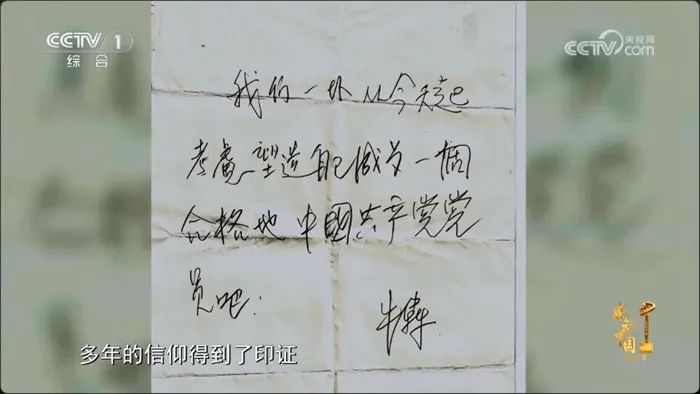 CCTV 1
综合
央视网
CCTV.com
我们一从今天起
考虑塑造自己成为一個
合格地中國共产党党
员吧.
牛犇
多年的信仰得到了印证
感动中国